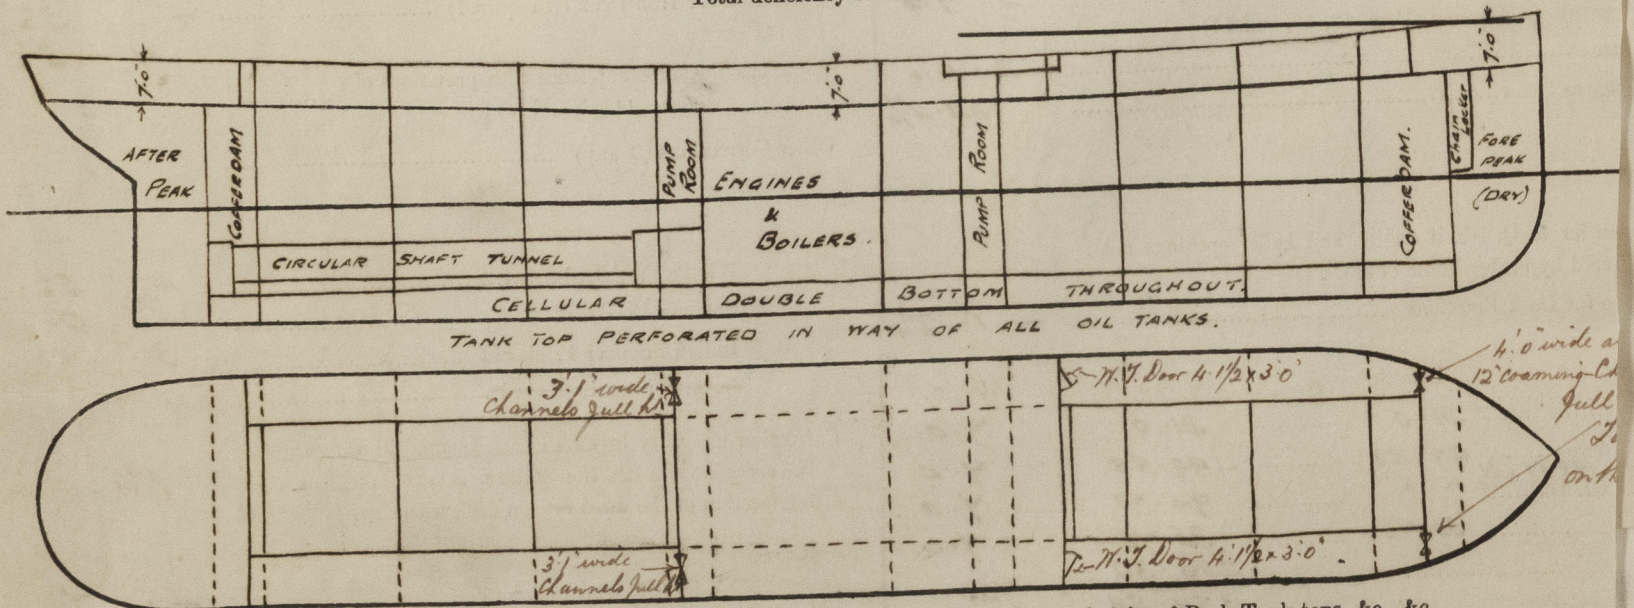 7'.0"
7'.0"
7'.0"
AFTER
PEAK
COFFERDAM
PUMP
ROOM
ENGINES
&
BOILERS.
PUMP ROOM
COFFERDAM.
CHAIN
LOCKER
FORE
PEAK
(DRY)
CIRCULAR SHAFT TUNNEL
CELLULAR DOUBLE BOTTOM THROUGHOUT.
TANK TOP PERFORATED IN WAY OF ALL OIL TANKS.
3'.1" wide
Channels full ht
W.T. Door 4'.1½ x 3'.0"
4'.0" wide
12" coaming
full
3'.1" wide
Channels full ht
W.T. Door 4'.1½ x 3'.0"